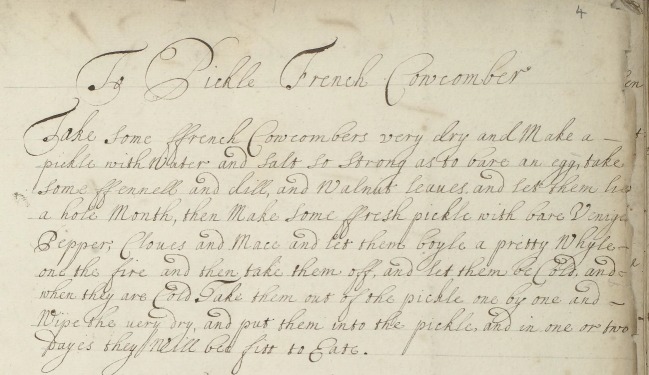 4
To Pickle French Cowcomber
Take some ffrench Cowcombers very dry and Make a –
pickle with Water and salt so strong as to bare an egg, take
some ffennell and dill, and Walnut leaves, and let them lie
a hole Month, then Make some ffresh pickle with bare Venige
Pepper, Cloves and Mace and let them boyle a pretty Whyle –
one the fire and then take them off, and let them be Cold, and
when they are Cold Take them out of the pickle one by one and –
Wipe the very dry, and put them into the pickle, and in one or two
dayes they Will bee fitt to Eate.